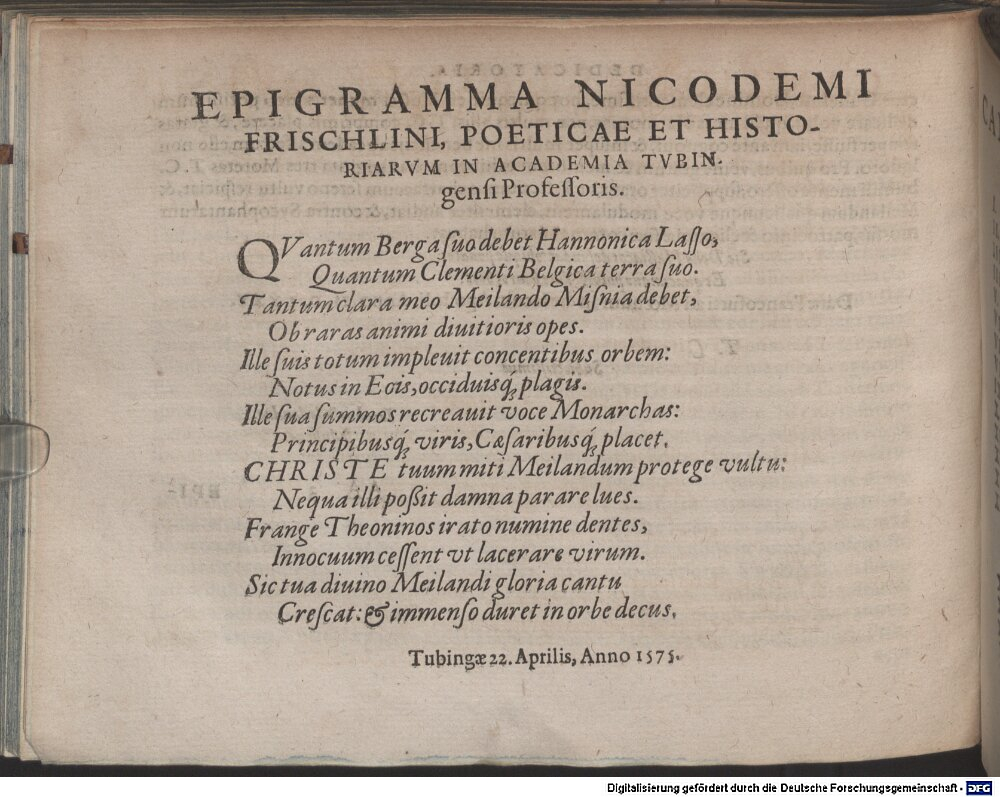 EPIGRAMMA NICODEMI
FRISCHLINI, POETICAE ET HISTO-
RIARVM IN ACADEMIA TVBIN-
genſi Profeſſoris.
QVantum Berga ſuo debet Hannonica Laſſo,
Quantum Clementi Belgica terra ſuo.
Tantum clara meo Meilando Miſnia debet,
Ob raras animi diuitioris opes.
Ille ſuis totum impleuit concentibus orbem:
Notus in Eois, occiduisq́; plagis.
Ille ſua ſummos recreauit voce Monarchas:
Principibusq́; viris, Cæſaribusq́; placet.
CHRISTE tuum miti Meilandum protege vultu:
Nequa illi poßit damna parare lues.
Frange Theoninos irato numine dentes,
Innocuum ceſſent vt lacerare virum.
Sic tua diuino Meilandi gloria cantu
Creſcat: & immenſo duret in orbe decus.
Tubingæ 22. Aprilis, Anno 1575.
Digitalisierung gefördert durch die Deutsche Forschungsgemeinschaft - DFG